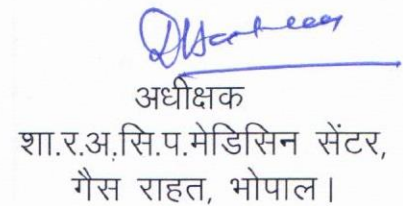 अधीक्षक
शा.र.अ.सि.प.मेडिसिन सेंटर,
गैस राहत, भोपाल।